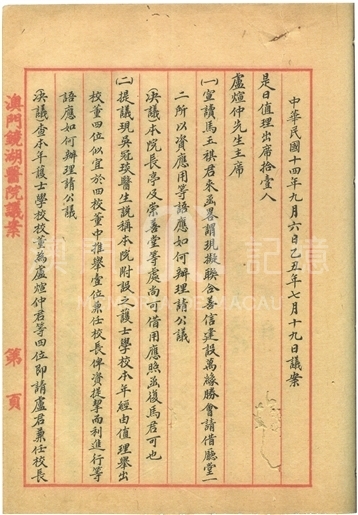 中華民國十四年九月六日乙丑年七月十九日議案
是日值理出席拾壹人
盧煊仲先生主席
㈠宣讀馬五祺君來函畧謂現擬聯合善信建設萬緣勝會請借廳堂一
二所以資應用等語應如何辦理請公議
決議本院長亭及崇善堂等處尚可借用應照函復馬君可也
㈡提議現吳冠琰醫生說稱本院附設之護士學校本年經由值理舉出
校董四位似宜於四校董中推舉壹位兼任校長俾資提挈而利進行等
語應如何辦理請公議
決議查本年護士學校校董為盧煊仲君等四位即請盧君兼任校長
澳門鏡湖醫院議案
第 頁
記憶
MACAU